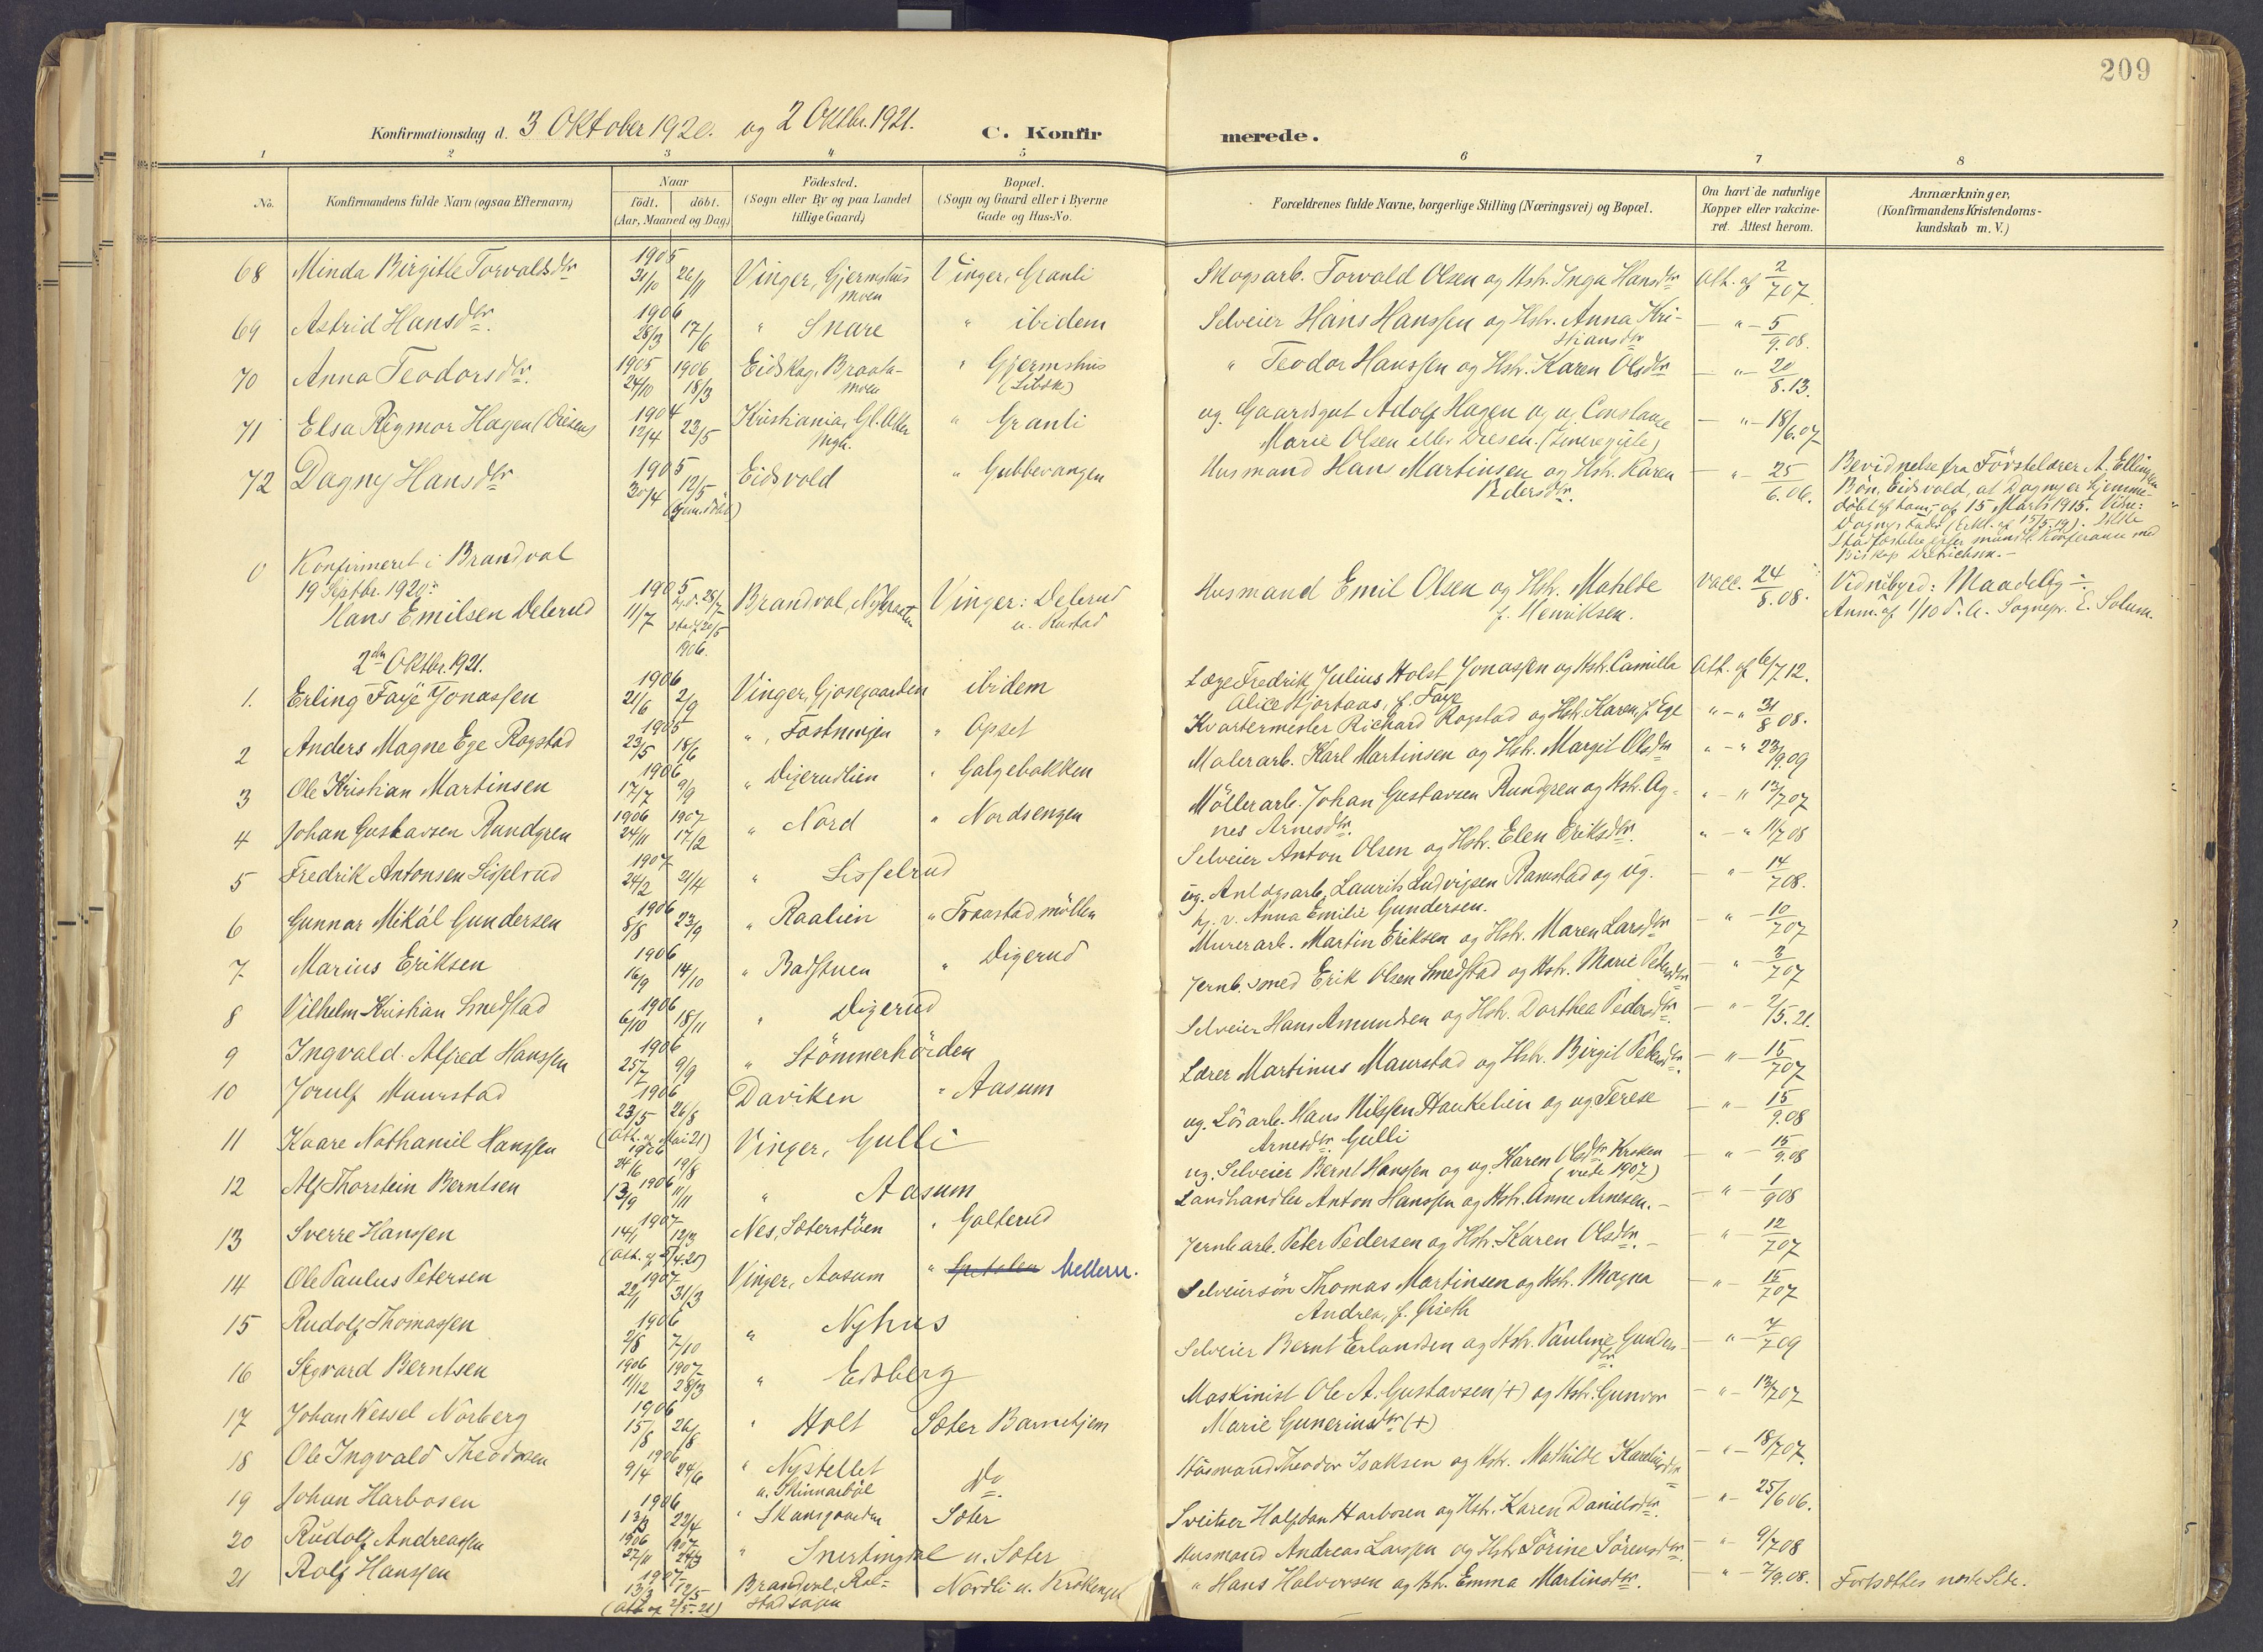 209
Konfirmationsdag d. 3 Oktober 1920. og 2 Oktbr. 1921. C. Konfirmerede.
1 2 3 4 5 6 7 8
No. Konfirmandens fulde Navn (ogsaa Efternavn) Naar födt. döbt. (Aar, Maaned og Dag) Födested. (Sogn eller By og paa Landet tillige Gaard) Bopæl. (Sogn og Gaard eller i Byerne Gade og Hus-No. Forældrenes fulde Navne, borgerlige Stilling (Næringsvei) og Bopæl. Om havt de naturlige Kopper eller vakcineret. Attest herom. Anmærkninger, (Konfirmandens Kristendomskundskab m. V.)
68 Minda Birgitte Torvalsdtr 1905 31/10 26/11 Vinger, Gjermshusmoen Vinger, Granli Skogsarb. Torvald Olsen og Hstr. Inga Hansdtr Att. af 2/7 07.
69 Astrid Hansdtr. 1906 28/3 17/6 " Snare " ibidem Selveier Hans Hanssen og Hstr. Anna Kristiansdtr — " — 5/9.08.
70 Anna Teodorsdtr. 1905 24/10 1906 18/3 Eidskog, Braatamoen " Gjermshus " Teodor Hanssen og Hstr. Karen Olsdtr — " — 20/8.13.
71 Elsa Rigmor Hagen (Diesen) 1904 12/4 23/5 Kristiania, Gl. Aker " Granli ug. Gaardsgut Adolf Hagen og ug. Constance
Marie Olsen eller Diesen. — " — 18/6.07
72 Dagny Hansdtr 1905 30/4 12/5 (hjem. döbt) Eidsvold " Gubbevangen Husmand Hans Martinsen og Hstr. Karen
Pedersdtr. — " — 25/6.06. Bevidnelse fra Förstelærer A. Ellingsen
Bön, Eidsvold, at Dagny er hjemme-
döbt af ham, af 15 Marts 1915.
0 Konfirmeret i Brandval
19 Septbr. 1920:
Hans Emilsen Delerud 1905 11/7 hj.d. 28/7 stadf. 20/5 1906. Brandval, Nybraaten Vinger: Delerud u. Rustad Husmand Emil Olsen og Hstr. Matilde
f. Henriksen. vacc. 24/8.08. Vidnesbyrd: Maadelig ÷
Anm. af 1/10 d. A. Sognepr. E. Solum.
2den Oktbr. 1921.
1. Erling Faye Jonassen 1906 21/6 2/9 Vinger, Gjosegaarden ibidem Læge Fredrik Julius Holst Jonassen og Hstr. Camilla
Alice Hjortaas, f. Faye Att. af 6/7 12.
2 Anders Magne Ege Rogstad 1905 23/5 18/6 " , Fastningen " Opset Kvartermester Richard Rogstad og Hstr. Karen, f. Ege " — " 31/8 08.
3 Ole Kristian Martinsen 1906 17/7 9/9 " Digerudlien " Galgebakken Malerarb. Karl Martinsen og Hstr. Margit Olsdtr " — " 23/9.09
4 Johan Gustavsen Rundgren 1906 24/11 1907 17/2 " Nord " Nordsengen Möllerarb. Johan Gustavsen Rundgren og Hstr. Ag-
nes Arnesdtr. " — " 13/7 07
5 Fredrik Antonsen Sisselrud 1907 24/2 21/4 " Sisselrud Selveier Anton Olsen og Hstr. Elen Eriksdtr. " — " 11/7 08
6 Gunnar Mikal Gundersen 1906 8/8 23/9 " Raalien " Traastad möllen ug. Anlægsarb. Laurits Ludvigsen Ramstad og ug.
Anna Emilie Gundersen. — " — 14/7 08.
7 Marius Eriksen 1906 16/9 14/10 " Badstuen " Digerud Murerarb. Martin Eriksen og Hstr. Maren Larsdtr — " — 10/7 07
8 Vilhelm Kristian Smedstad 1906 6/10 18/11 " Digerud Jernb. smed Erik Olsen Smedstad og Hstr. Marie Pedersdtr — " — 3/7 07
9 Ingvald Alfred Hanssen 1906 25/7 9/9 " Stömnerhöiden Selveier Hans Amundsen og Hstr. Dorthea Pedersdtr. — " — 2/5.21.
10 Jorulf Maurstad 1906 23/5 26/8 Daviken " Aasum Lærer Martinus Maurstad og Hstr. Birgit Petersdtr. — " — 15/7 07
11 Kaare Nathaniel Hanssen (Att. af Mai 21) 1906 24/6 19/8 Vinger, Gulli ug. Lösarb. Hans Nilssen Haukelien og ug. Terese
Arnesdtr. Gulli — " — 15/9.08
12 Alf Thorstein Berntsen 1906 13/9 11/11 " Aasum ug. Selveier Bernt Hanssen og ug. Karen Olsdtr.
(viede 1907) — " — 15/9.08
13 Sverre Hanssen 1907 14/1 12/3 Nes, Sæterstöen " Galterud Landhandler Anton Hanssen og Hstr. Anne Arnesen. — — " — 1/9 08
14 Ole Paulus Petersen (Att. af 5/4.21) 1907 22/1 31/3 Vinger, Aasum " Mellem. Jernb.arb. Peter Pedersen og Hstr. Karen Olsdtr. — — " — 12/7 07
15 Rudolf Thomassen 1906 2/8 7/10 " Nyhus Selveiersön Thomas Martinsen og Hstr. Magna
Andrea, f. Giseth — " — 15/7 07
16 Sigvard Berntsen 1906 11/12 1907 28/3 " Edsberg Selveier Bernt Erlandsen og Hstr. Pauline Gundersdtr. — " — 7/7 09
17 Johan Wessel Norberg 1906 15/8 26/8 " Holt Sæter Barnehjem Maskinist Ole A. Gustavsen (+) og Hstr. Gunvor
Marie Gunerinsdtr (+) — " — 13/7 07
18 Ole Ingvald Theodorsen 1906 9/4 24/6 " Nystellet u. Skinnarböl Do. Husmand Theodor Isaksen og Hstr. Mathilde — " — 18/7 07.
19 Johan Harbosen 1906 13/3 22/4 " Skansgaarden Sæter Sveitser Halfdan Harbosen og Hstr. Karen Danielsdtr. — " — 25/6 06.
20 Rudolf Andreassen 1906 27/11 1907 24/3 " Snertingdal u. Sæter Husmand Andreas Larssen og Hstr Sörine Sörensdtr. — " — 9/7 08
21 Rolf Hanssen 1907 13/3 12/5 (Att. af 2/5.21) Brandval, Rolstadsagen Nordli u. " Hans Halvorsen og Hstr. Emma Martinsdtr. — " — 7/9.08. Fortsættes næste Side.